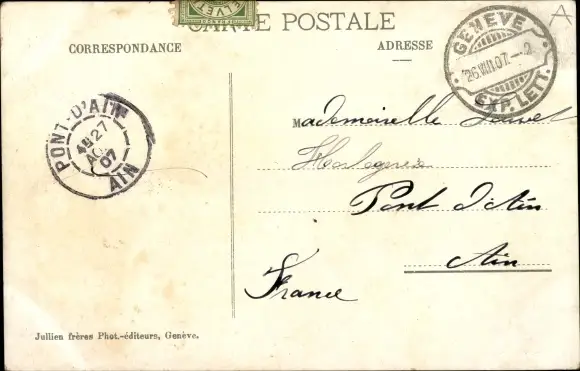 HELVET
CARTE POSTALE
CORRESPONDANCE
ADRESSE
GENEVE
26.VIII.07.—2
EXP. LETT.
A
PONT-D'AIN
27
07
AIN
Mademoiselle
Pont d'Ain
Ain
France
Jullien frères Phot.-éditeurs, Genève.